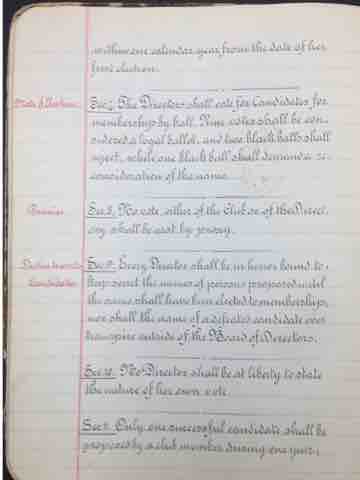 within one calendar year from the date of her
first election.
Mode of Election
Sec. 7. The Directors shall vote for Candidates for
membership by ball. Nine votes shall be con-
sidered a legal ballot, and two black balls shall
reject, while one black ball shall demand a re-
consideration of the name.
Proxies
Sec. 8. No vote either of the Club or of the Direct-
ory shall be cast by proxy.
Candidates
Sec. 9. Every Director shall be in honor bound to
keep secret the names of persons proposed until
the name shall have been elected to membership,
nor shall the name of a defeated candidate ever
transpire outside of the Board of Directors.
Sec. 10. No Director shall be at liberty to state
the nature of her own vote.
Sec. 11. Only one successful candidate shall be
proposed by a club member during one year,